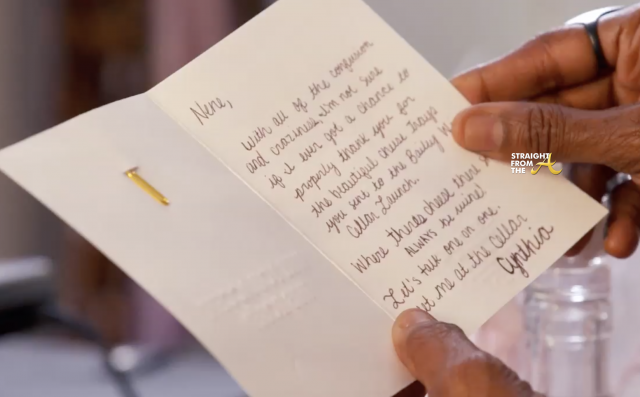 Nene,
With all of the confusion
and craziness, I'm not sure
if I ever got a chance to
properly thank you for
the beautiful cheese trays
you sent to the Bailey W
Cellar Launch.
Where theres cheese there
ALWAYS be wine!
Let's talk one on one.
et me at the Cellar
Cynthia
STRAIGHT
FROM
THE A